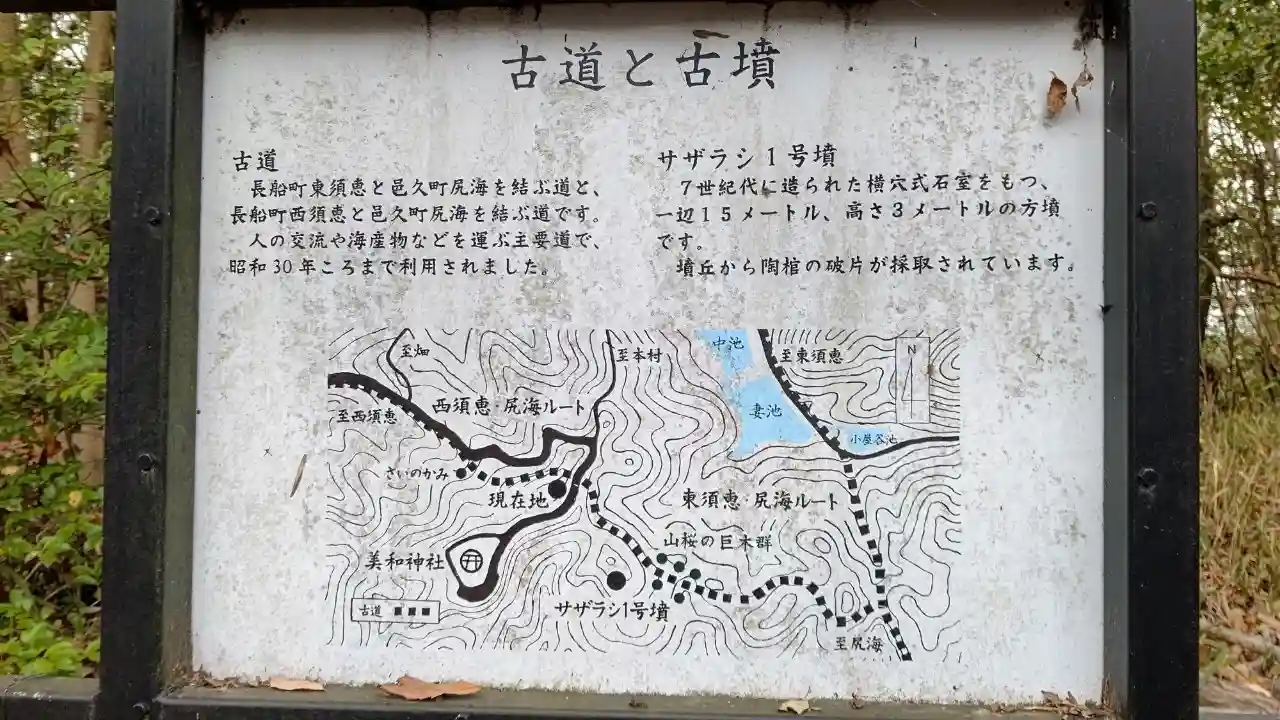 古道と古墳
古道
長船町東須恵と邑久町尻海を結ぶ道と、
長船町西須恵と邑久町尻海を結ぶ道です。
人の交流や海産物などを運ぶ主要道で、
昭和30年ころまで利用されました。
サザラシ1号墳
7世紀代に造られた横穴式石室をもつ、
一辺15メートル、高さ3メートルの方墳
です。
墳丘から陶棺の破片が採取されています。
至畑
至本村
中池
至東須恵
N
至西須恵
西須恵・尻海ルート
妻池
小屋谷池
さいのかみ
現在地
東須恵・尻海ルート
山桜の巨木群
美和神社
サザラシ1号墳
古道
至尻海